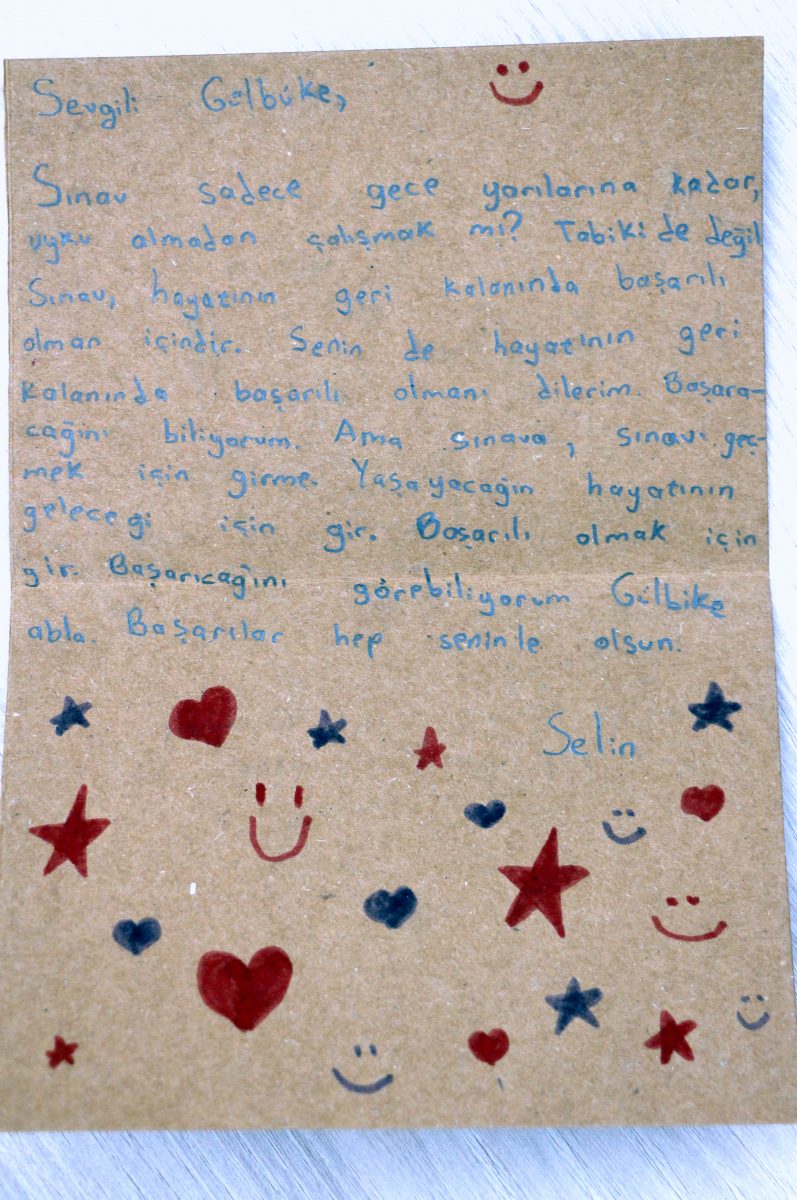 Sevgili Gülbüke,
Sınav sadece gece yarılarına kadar,
uyku almadan çalışmak mı? Tabiki de değil
Sınav, hayatının geri kalanında başarılı
olman içindir. Senin de hayatının geri
kalanında başarılı olmanı dilerim. Başara-
cağını biliyorum. Ama sınava, sınavı geç-
mek için girme. Yaşayacağın hayatının
geleceği için gir. Başarılı olmak için
gir. Başarıcağını görebiliyorum Gülbike
abla. Başarılar hep seninle olsun.
Selin